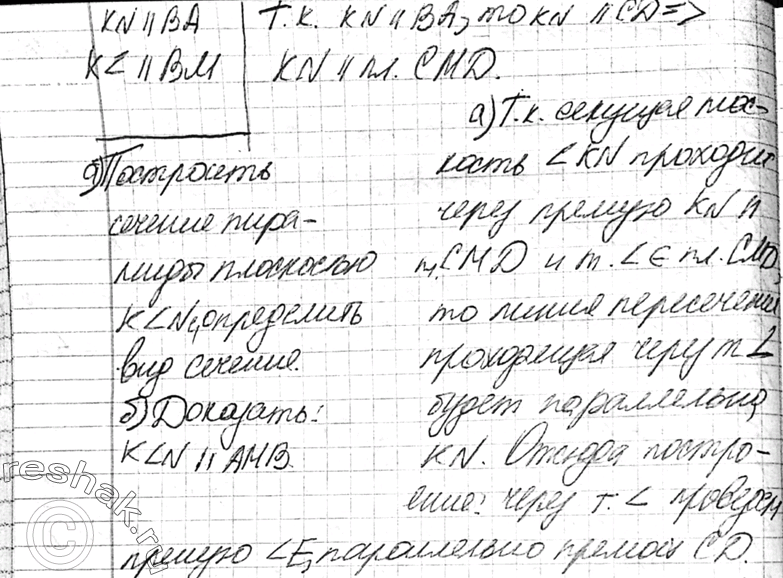 KN || BA
Т.к. KN || BA, то KN || CD =>
KL || BM
KN || пл. CMD.
а) Построить
сечение пира-
миды плоскостью
KLN, определить
вид сечение.
б) Доказать:
KLN || AMB.
а) Т.к. секущая плос-
кость LKN проходит
через прямую KN ||
п. CMD и т. L ∈ пл. CMD
то линия пересечения
проходящая через т L
будет параллельна
KN. Отсюда постро-
ение: через т. L проведем
прямую LE, параллельно прямой CD.
reshak.ru